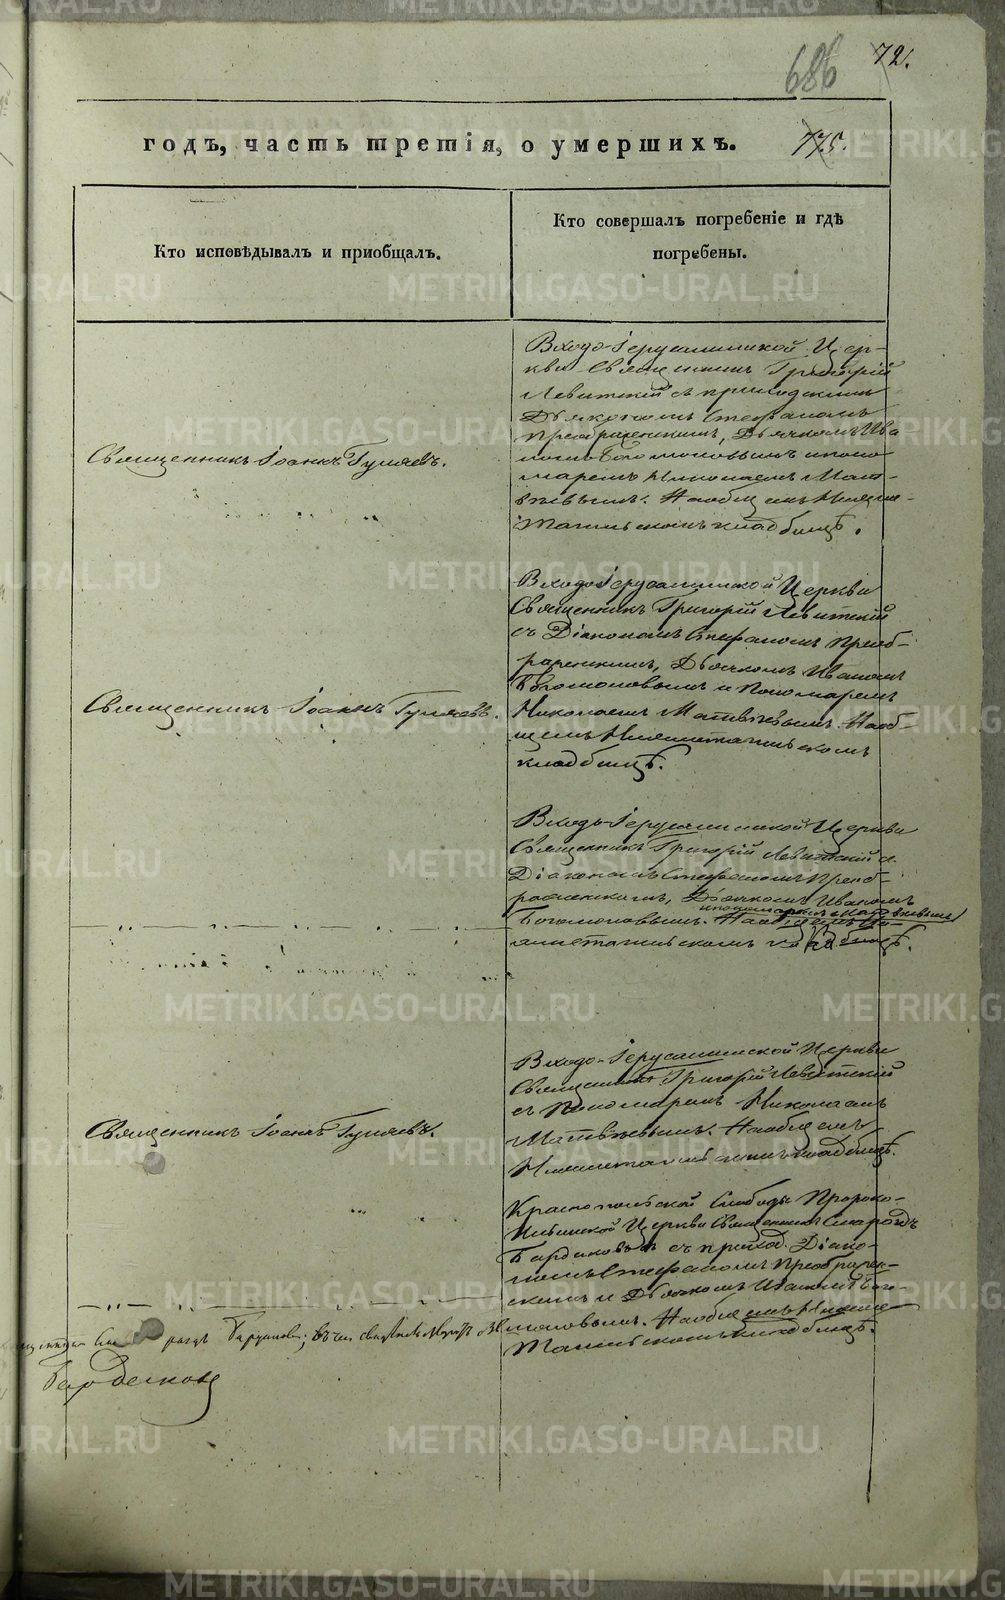 686
72.
годъ, часть третія, о умершихъ.
775.
Кто исповѣдывалъ и приобщалъ.
Кто совершалъ погребеніе и гдѣ
погребены.
Входо-Іерусалимской Цер-
кви Священникъ Григорій
Левитскій съ приходскимъ
Діакономъ Стефаномъ
Преображенскимъ, Дьячкомъ Ива
номъ Богомоловымъ и поно
маремъ Николаемъ Мат-
вѣевымъ. На общемъ Нижне-
Тагильскомъ кладбищѣ.
Священникъ Іоаннъ Гуляевъ.
Входо Іерусалимской Церкви
Священникъ Григорій Левитскій
съ Діакономъ Стефаномъ Преоб-
раженскимъ, Дьячкомъ Иваномъ
Богомоловымъ и Пономаремъ
Николаемъ Матвѣевымъ. На об-
щемъ Нижнетагильскомъ
кладбищѣ.
Священникъ Іоаннъ Гуляевъ.
Входо-Іерусалимской Церкви
Священникъ Григорій Левитскій съ
Діакономъ Стефаномъ Преоб-
раженскимъ, Дьячкомъ Иваномъ
и пономаремъ Матвѣевымъ
Богомоловымъ. На общемъ Ни-
жнетагильскомъ кладбищѣ.
Входо-Іерусалимской Церкви
Священникъ Григорій Левитскій
съ Пономаремъ Николаемъ
Матвѣевымъ. На общемъ
Нижнетагильскомъ кладбищѣ.
Священникъ Іоаннъ Гуляевъ.
Краснопольской Слободы Пророко-
Ильинской Церкви Священникъ
Бардаковъ съ приход. Діако-
номъ Стефаномъ Преображен-
скимъ и Дьячкомъ Иваномъ Бого-
моловымъ. На общемъ Нижне-
Тагильскомъ кладбищѣ.
METRIKI.GASO-URAL.RU